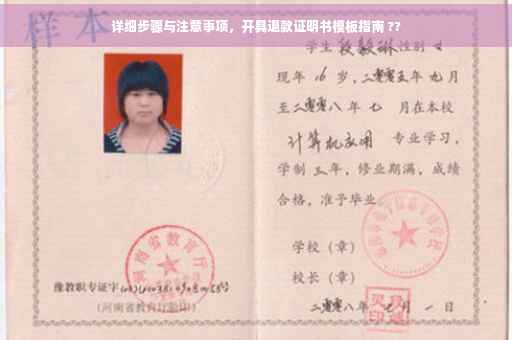 详细步骤与注意事项，开具退款证明书模板指南 ??
样本
学生段毅琳性别女
现年 16 岁，二零零五年九月
至二零零八年七 月在本校
计算机应用 专业学习，
学制三年，修业期满，成绩
合格，准予毕业。
学校（章）
校长（章）
二零零八年七月一日
河南省教育厅
豫教职专证字
(河南省教育厅验印)